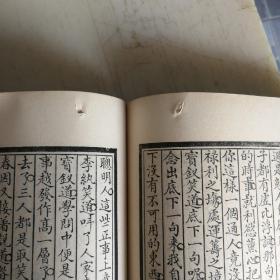 子都有虛比浮
你這樣一個通人竟
祿利之場處運籌之
寶釵笑道底下一句
念出底下一句來我自
下沒有不可用的東西
聰明人這些正事
李紈笑道叫了人家
寶釵道學問中便是
事越發作高一層了
去了三人都是取笑
春因又接着說